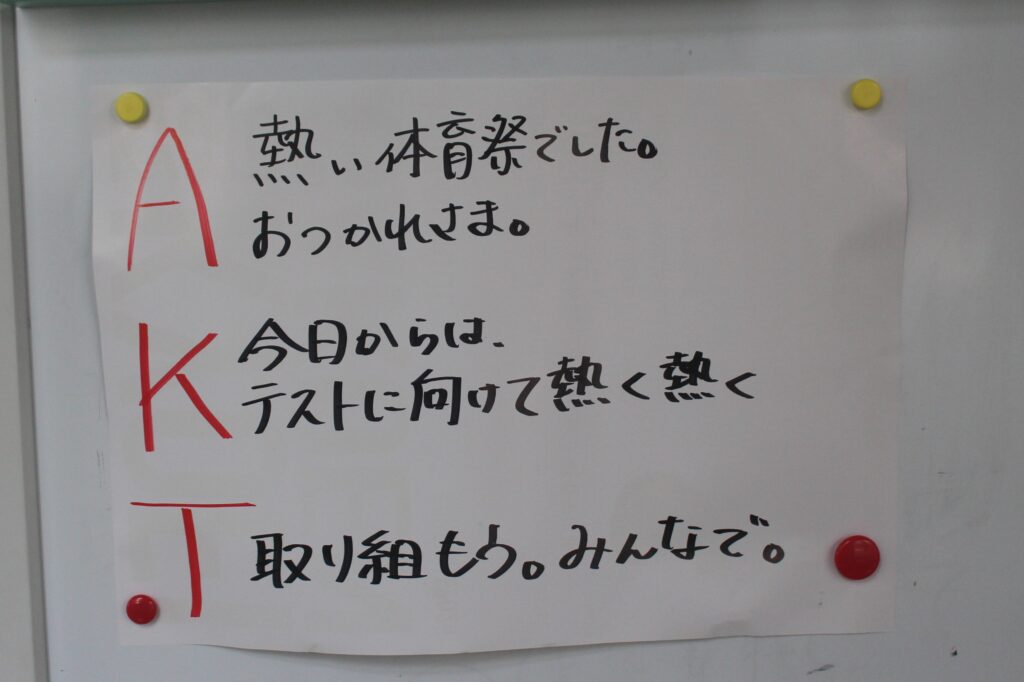 A 熱い体育祭でした。
おつかれさま。
K 今日からは、
テストに向けて熱く熱く
T 取り組もう。みんなで。